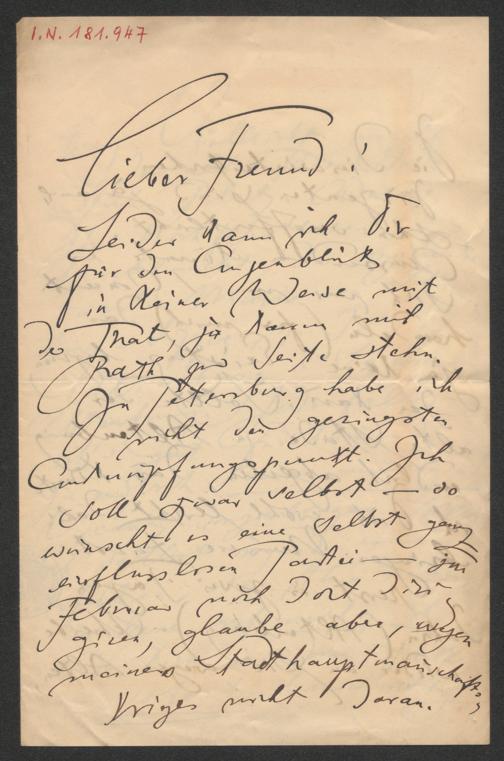 I.N. 181.947
Lieber Freund!
Leider kann ich Dir
für den Augenblick
in keiner Weise mit
der That, ja kaum mit
Rath zur Seite stehn.
In Petersburg habe ich
nicht den geringsten
Anknüpfungspunkt. Ich
soll zwar selbst — so
wünscht es eine selbst ganz
einflusslose Partei — im
Februar noch dort diri-
giren, glaube aber, wegen
meines Stadthauptmannschafts-
krieges nicht daran.